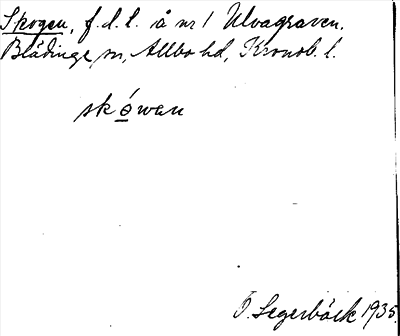 Skogen, f.d.l. å nr 1 Ulvagraven.
Blädinge sn, Allbo hd, Kronob. l.
skówan
Ö. Segerbäck 1935.